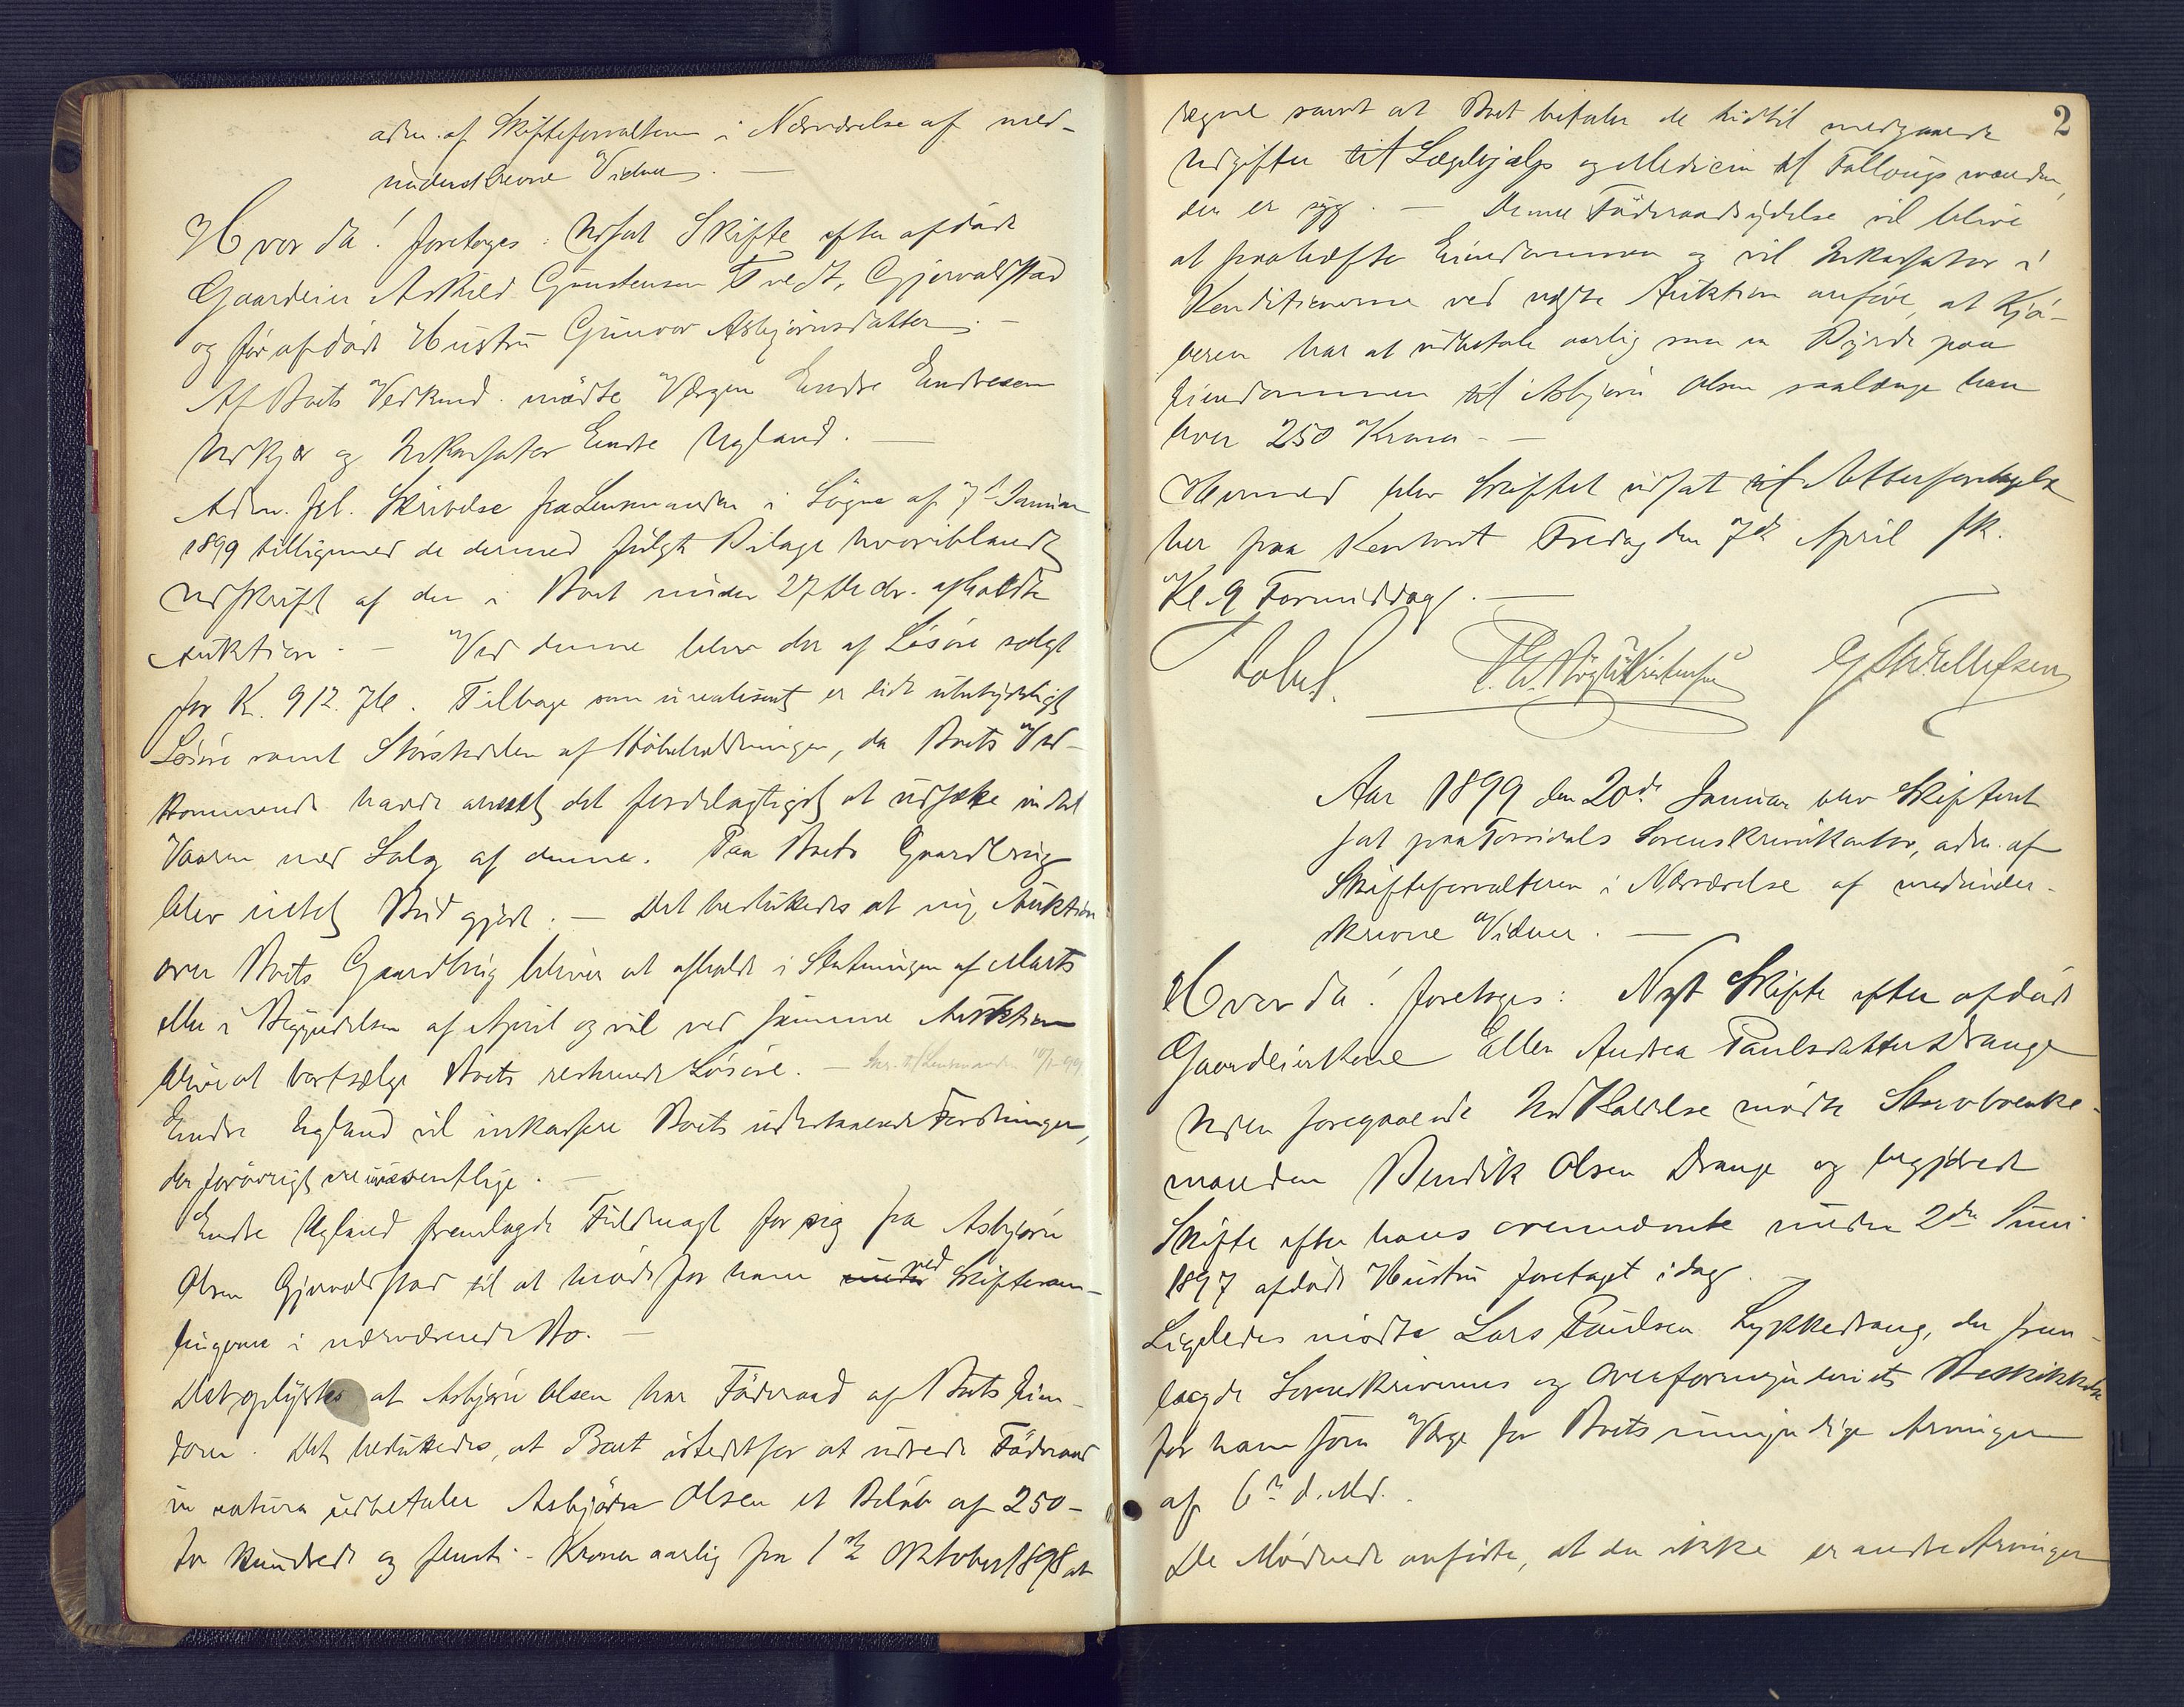 adm. af Skifteforvalteren i Nærværelse af med-
underskrevne Vidner. —
Hvorda! foretoges: Udsat Skifte efter afdøde
Gaardeier Askild Gunstensen Tvedt, Gjervoldstad
og før afdøde Hustru Gunvor Asbjørnsdatter. —
Af Boets Vedkmd. mødte Værgen Endre Endresen
Udkjær og Inkassator Endre Ugland. —
Adm. fol. Skrivelse fra Lensmanden i Søgne af 7de Januar
1899 tilligemed de dermed fulgte Bilage hvoriblandt
Udskrift af den i Boet under 27 Decbr. afholdte
Auktion. — Ved denne blev der af Løsøre solgt
for K. 912.76. Tilbage som urealiseret er lidt ubetydeligt
Løsøre samt Størstedelen af Høbeholdningen, da Boets Ved-
kommende havde anseet det fordelagtigst at udsætte indtil
Vaaren med Salg af denne. Paa Boets Gaardbrug
blev intet Bud gjort. — Det besluttedes at ny Auktion
over Boets Gaardbrug bliver at afholde i Slutningen af Marts
eller i Begyndelsen af April og vil ved samme Auktion
blive at bortsælge Boets resterende Løsøre. — Skr. til Lensmanden 10/1-99
Endre Ugland vil inkassere Boets udestaaende Fordringer,
der forøvrigt ere uvæsentlige. —
Endre Ugland fremlagde Fuldmagt for sig fra Asbjørn
Olsen Gjervoldstad til at møde for ham under ved Skiftesam-
lingerne i nærværende Bo. —
Det oplystes at Asbjørn Olsen har Føderaad af Boets Eien-
dom. Det besluttedes, at Boet istedetfor at udrede Føderaad
in natura udbetaler Asbjørn Olsen et Beløb af 250 -
to hundrede og femti - Kroner aarlig fra 1ste Oktober 1898 at
2
regne samt at Boet betaler de hidtil medgaaede
Udgifter til Lægehjælp og Medicin til Follougsmanden,
der er syg. — Denne Føderaadsydelse vil blive
at paahefte Eiendommen og vil Inkassator i
Konditionerne ved næste Auktion anføre, at Kjø-
beren har at udbetale aarlig som en Byrde paa
Eiendommen til Asbjørn Olsen saalænge han
lever 250 Kroner. —
Hermed blev Skiftet udsat til Atterforetagelse
her paa Kontoret Fredag den 7de April fk.
Kl. 9 Formiddag. —
G. Th. Ellefsen
Aar 1899 den 20de Januar blev Skifteret
sat paa Torridals Sorenskriverkontor, adm. af
Skifteforvalteren i Nærværelse af medunder-
skrevne Vidner. —
Hvorda! foretoges: Nyt Skifte efter afdøde
Gaardeierkone Ellen Andrea Paulsdatter Drange
Uden foregaaende Indkaldelse mødte Stervboenke-
manden Bendik Olsen Drange og begjærede
Skifte efter hans ovennævnte under 2den Juni
1897 afdøde Hustru foretaget idag. —
Ligeledes mødte Lars Paulsen Lykkedrang, der frem-
lagde Sorenskriverens og Overformynderiets Beskikkelse
for ham som Værge for Boets umyndige Arvinger
af 6te d. Md.
De Mødende anførte, at der ikke er andre Arvinger